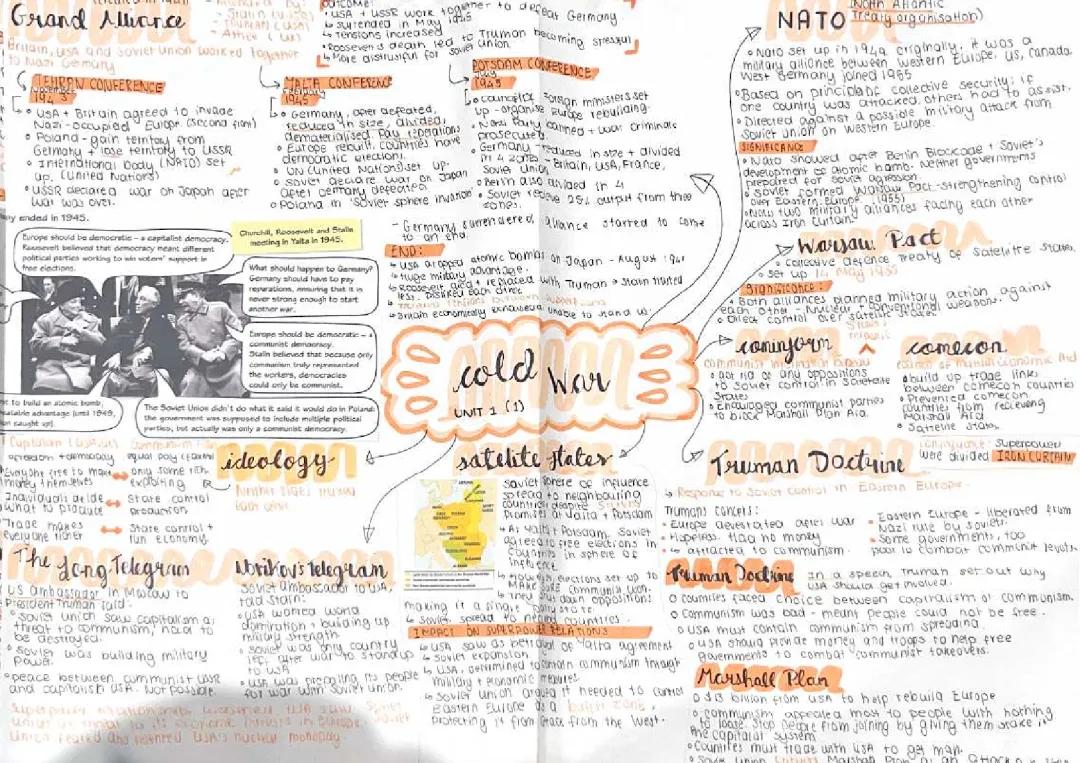 Grand Alliance
Stalin (USSR)
Truman (USA)
Attlee (UK)
Britain, USA and Soviet Union worked together
to Nazi Germany
OUTCOME:
• USA + USSR work together to defeat Germany
↳ surrended in May 1945
↳ Tensions increased
• Roosevelt's death led to Truman becoming
↳ More distrustful for Soviet Union.
TEHRAN CONFERENCE
1943
• USA + Britain agreed to invade
Nazi-occupied Europe (second front)
• Poland - gain territory from
Germany + lose territory to USSR
• International body (NATO) set
up. (United Nations)
• USSR declared war on Japan after
war was over.
YALTA CONFERENCE
February
1945
• Germany, after defeated,
reduced in size, divided,
dematerialised pay reparations
• Europe rebuilt, countries have
democratic election.
• UN (United Nations) set up.
• Soviet declare war on Japan
after Germany defeated
• Poland in 'Soviet sphere invasion'
POTSDAM CONFERENCE
July
1945
• council of foreign ministers set
up - organise Europe rebuilding.
• Nazi Party banned + war criminals
prosecuted.
• Germany reduced in size + divided
in 4 zones - Britain, USA, France,
Soviet Union
• Berlin also divided in 4
• Soviet receive 25% output from three
zones.
- Germany surrendered alliance started to come
to an end.
END:
↳ USA dropped atomic bombs on Japan - August 1945
↳ Huge military advantage.
↳ Roosevelt died + replaced with Truman → Stalin trusted
less. Disliked each other
↳ Britain economically exhausted unable to stand
NATO
(North Atlantic
Treaty organisation)
• Nato set up in 1949 originally, it was a
military alliance between Western Europe, US, Canada.
West Germany joined 1955
• Based on principle of collective security: if
one country was attacked, others had to assist.
• Directed against a possible military attack from
Soviet Union on Western Europe.
SIGNIFICANCE
• Nato showed after Berlin Blockade + Soviet's
development of atomic bomb. Neither governments
prepared for Soviet agression.
• Soviet formed Warsaw Pact - strengthening control
over Eastern Europe. (1955)
• Now two military alliances facing each other
across Iron Curtain.
Warsaw Pact
• Collective defence treaty of Satellite States.
• Set up 14 May 1955
Significance:
• Both alliances planned military action against
each other - Nuclear + conventional weapons.
• Direct control over Satellite States.
ny ended in 1945.
Europe should be democratic – a capitalist democracy.
Roosevelt believed that democracy meant different
political parties working to win voters' support in
free elections.
Churchill, Roosevelt and Stalin
meeting in Yalta in 1945.
What should happen to Germany?
Germany should have to pay
reparations, ensuring that it is
never strong enough to start
another war.
Europe should be democratic – a
communist democracy.
Stalin believed that because only
communism truly represented
the workers, democracies
could only be communist.
nt to build an atomic bomb,
valuable advantage (until 1949,
on caught up).
The Soviet Union didn't do what it said it would do in Poland:
the government was supposed to include multiple political
parties, but actually was only a communist democracy.
cold War
UNIT 1 (1)
cominform
• Got rid of any oppositions
to Soviet control in Satellite
States
• Encouraged communist parties
to block Marshall Plan Aid.
comecon
• build up trade links
between comecon countries
• Prevented comecon
countries from receiving
Marshall Aid
• Satellite States
Superpower
were divided IRON CURTAIN
ideology
Capitalism
freedom + democracy
Everyone free to make
money themselves
Individuals decide
what to produce
Trade makes
everyone richer
equal pay
only some rich
exploiting
State control
production
State control +
run economy.
The Long Telegram
US Ambassador in Moscow to
President Truman said:
• Soviet Union saw capitalism as
threat to communism, need to
be destroyed.
• Soviet was building military
power.
• peace between communist USSR
and capitalist USA. Not possible.
Novikov's telegram
Soviet Ambassador to USA,
told Stalin
• USA wanted world
domination + building up
military strength
• Soviet was only country
left after war to stand up
to USA
• USA was preparing its people
for war with Soviet Union.
satelite states
Soviet sphere of influence
spread to neighbouring
countries despite Stalin's
promises at Yalta + Potsdam
↳ At Yalta + Potsdam, Soviet
agreed to free elections in
countries in sphere of
influence.
↳ However, elections set up to
MAKE sure communists won.
↳ They put down oppositions
making it a single party state
↳ Soviet spread to needed countries.
IMPACT ON SUPERPOWER RELATIONS
↳ USA saw as betrayal of Yalta agreement
↳ Soviet expansion.
↳ USA, determined to contain communism through
military + economic measures
↳ Soviet Union argued it needed to control
Eastern Europe as a buffer zone,
protecting it from attack from the West.
Truman Doctrine
↳ Response to Soviet control in Eastern Europe.
Truman's concers:
• Europe devestated after war
• Hopeless. Had no money
↳ attracted to communism.
• Eastern Europe - liberated from
Nazi rule by Soviet.
• Some governments, too
poor to combat communist revolts.
Truman Doctrine
In a speech, Truman set out why
USA should get involved.
○ countries faced choice between capitalism or communism.
○ Communism was bad - means people could not be free.
○ USA must contain communism from spreading.
○ USA should provide money and troops to help free
governments to combat communist takeovers.
Marshall Plan
○ $13 billion from USA to help rebuild Europe
○ communism appealed most to people with nothing
to loose. Stop people from joining by giving them stake in
the capitalist system
○ Countries must trade with USA to get